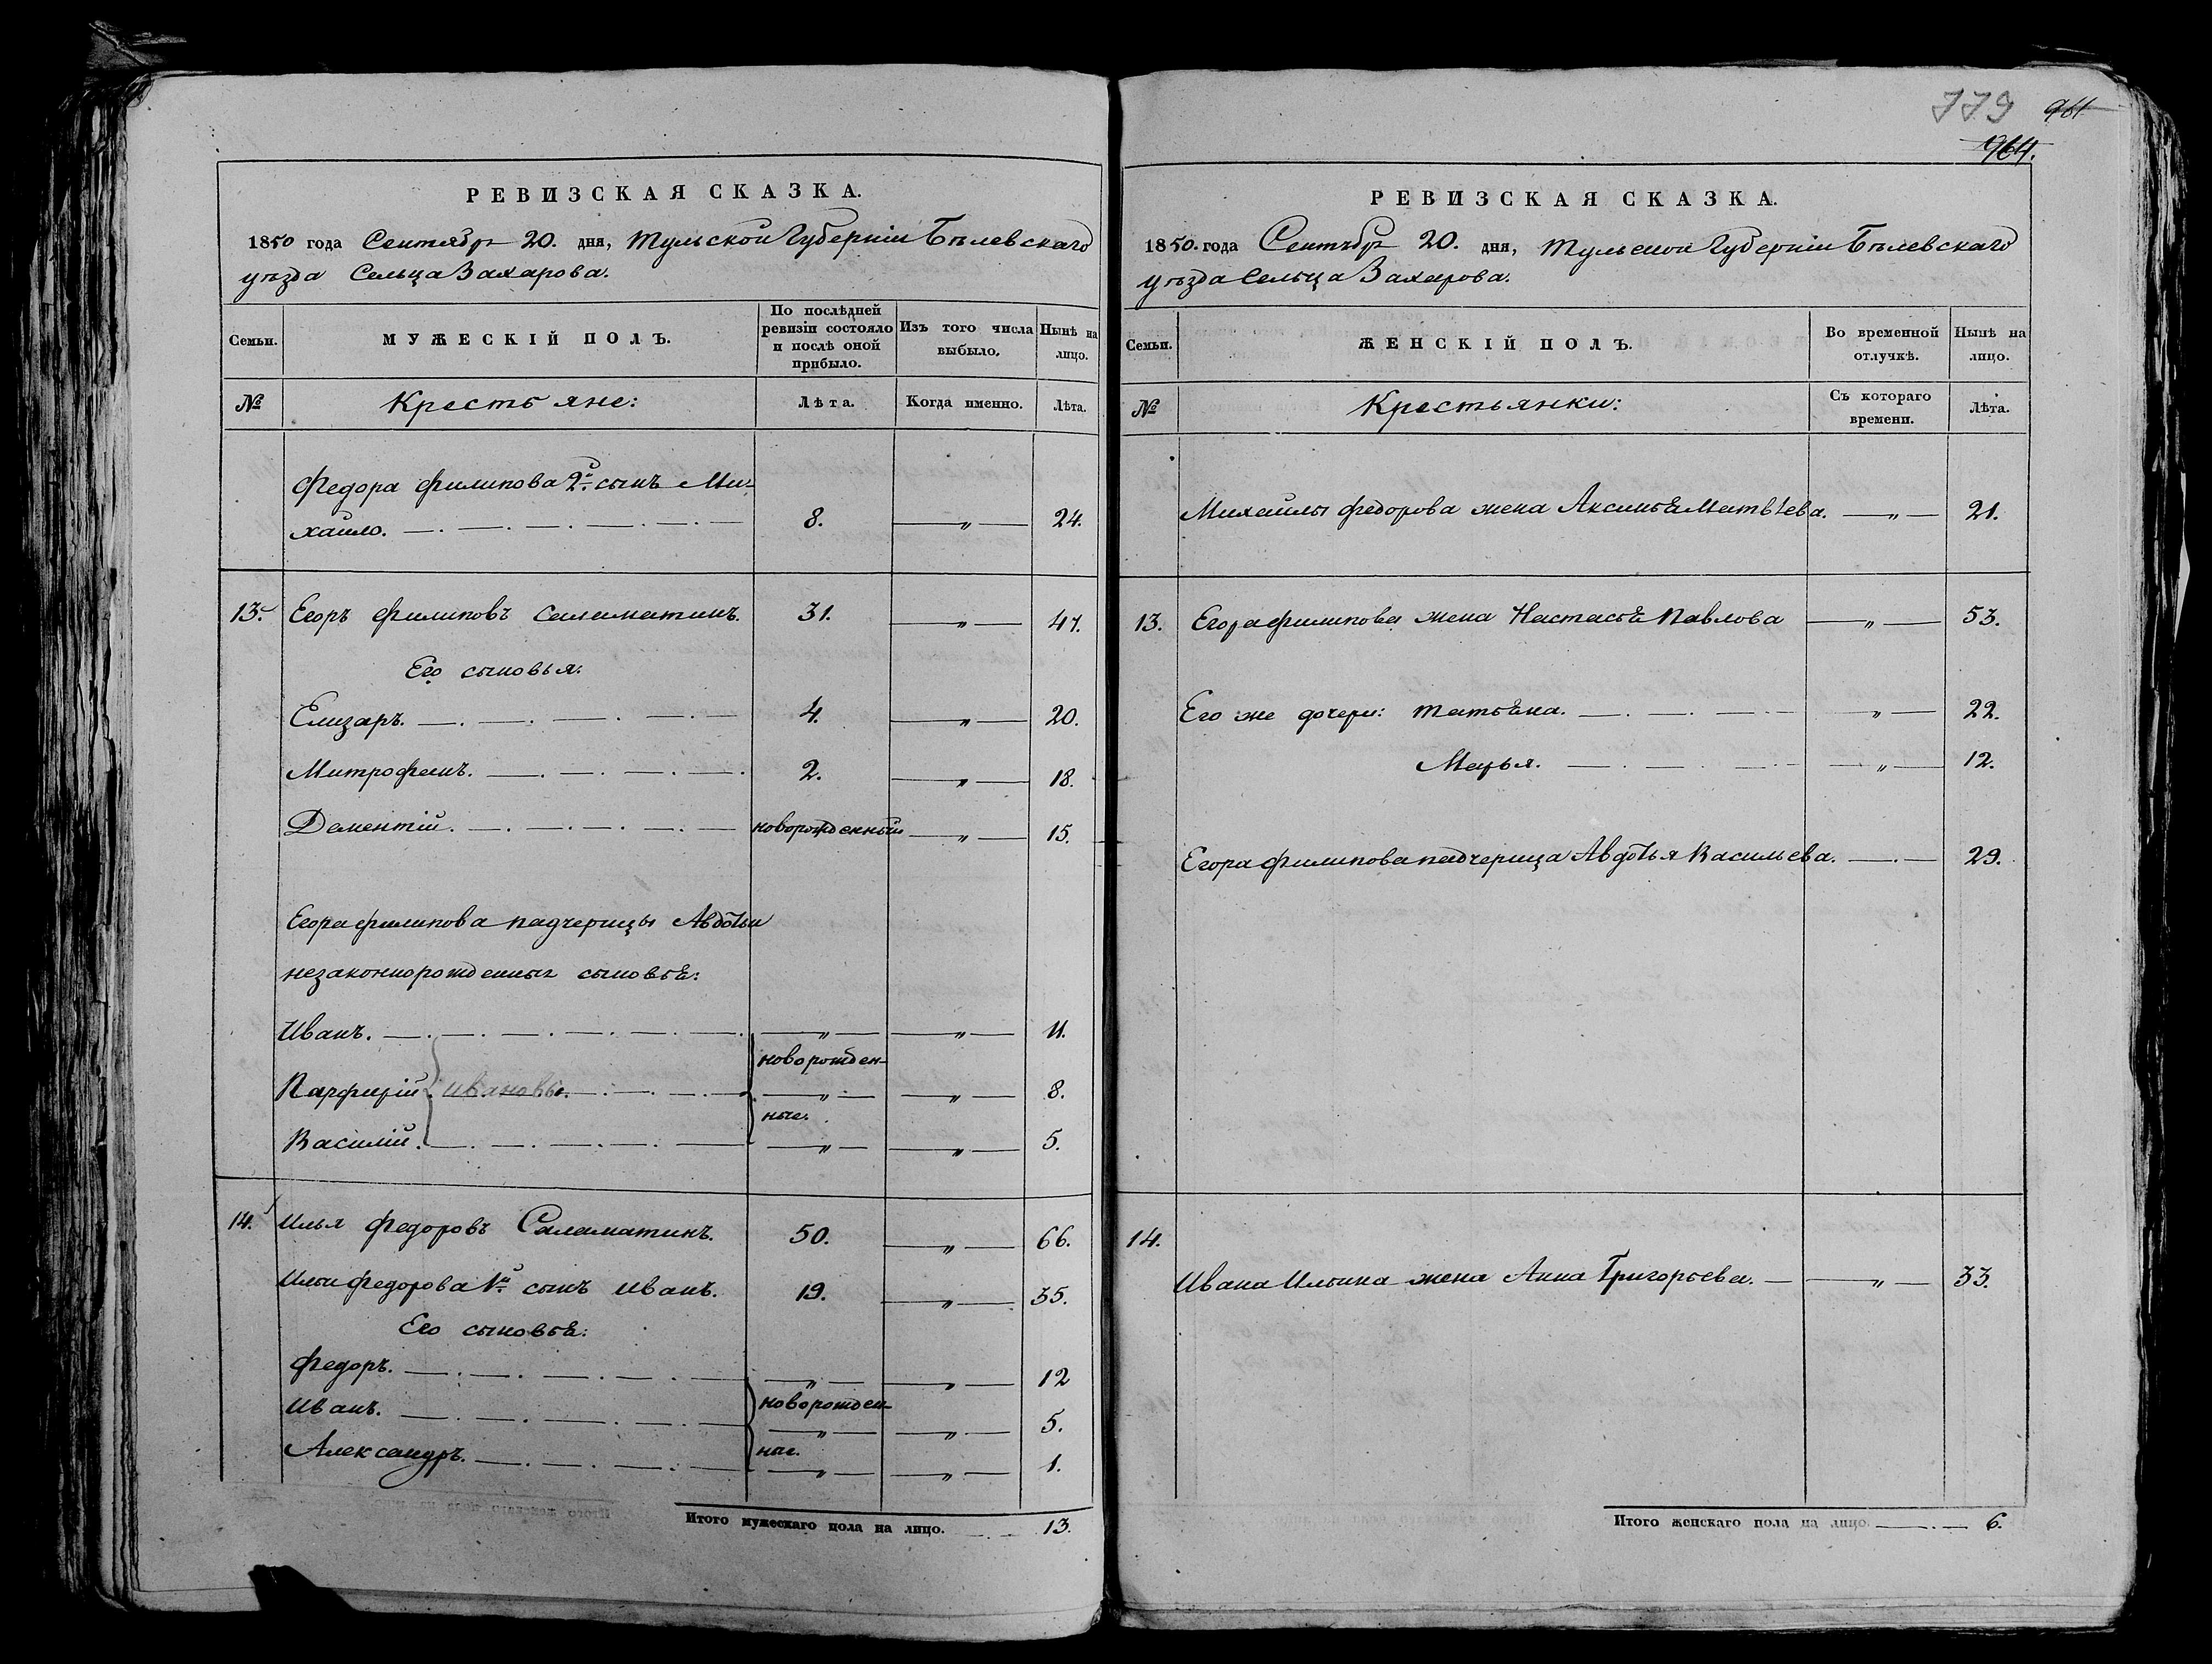 779 961
964.
РЕВИЗСКАЯ СКАЗКА.
1850 года Сентября 20. дня, Тульской Губерніи Бѣлевскаго
уѣзда Сельца Захарова.
Семьи. МУЖЕСКІЙ ПОЛЪ. По послѣдней ревизіи состояло и послѣ оной прибыло. Изъ того числа выбыло. Нынѣ на лицо.
№ Крестьяне: Лѣта. Когда именно. Лѣта.
Федора Филипова 2й сынъ Ми-
хайло. 8. „ 24.
13. Егоръ Филиповъ Саламатинъ. 31. „ 47.
Его сыновья:
Елизаръ. 4. „ 20.
Митрофанъ. 2. „ 18.
Дементій. новорожденный „ 15.
Егора Филипова падчерицы Авдотьи
незаконнорожденныя сыновья:
Иванъ. „ „ 11.
новорожден-
Парфирій Ивановы. „ „ 8.
ные.
Василій. „ „ 5.
14. Илья Федоровъ Саламатинъ. 50. „ 66.
Ильи Федорова 1й сынъ Иванъ. 19. „ 35.
Его сыновья:
Федоръ. „ „ 12
новорожден-
Иванъ. „ „ 5.
ные.
Александръ. „ „ 1.
Итого мужескаго пола на лицо. 13.
РЕВИЗСКАЯ СКАЗКА.
1850. года Сентября 20. дня, Тульской Губерніи Бѣлевскаго
уѣзда Сельца Захарова.
Семьи. ЖЕНСКІЙ ПОЛЪ. Во временной отлучкѣ. Нынѣ на лицо.
№ Крестьянки: Съ котораго времени. Лѣта.
Михайлы Федорова жена Аксинья Матвѣева. „ 21.
13. Егора Филипова жена Настасья Павлова „ 53.
Его же дочери: Татьяна. „ 22.
Марья. „ 12.
Егора Филипова падчерица Авдотья Васильева. 29.
14.
Ивана Ильина жена Анна Григорьева. „ 33.
Итого женскаго пола на лицо. 6.